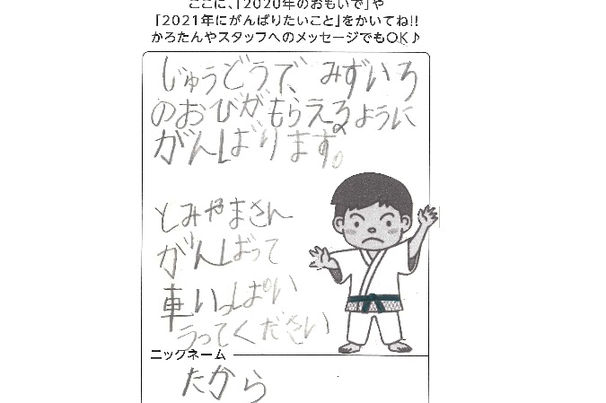 ここに、「2020年のおもいで」や
「2021年にがんばりたいこと」をかいてね!!
かろたんやスタッフへのメッセージでもOK♪
じゅうどうで、みずいろ
のおびがもらえるように
がんばります。
とみやまさん
がんばって
車いっぱい
うってください
ニックネーム
たから